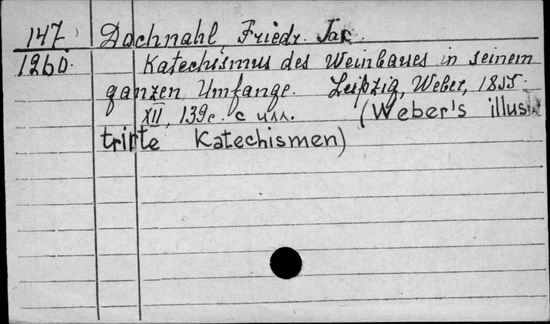 147 Dochnahl, Friedr. Jac.
1260. Katechismus des Weinbaues in seinem
ganzen Umfange. Leipzig, Weber, 1855
XII, 139c. с илл. (Weber's illus
trirte Katechismen)